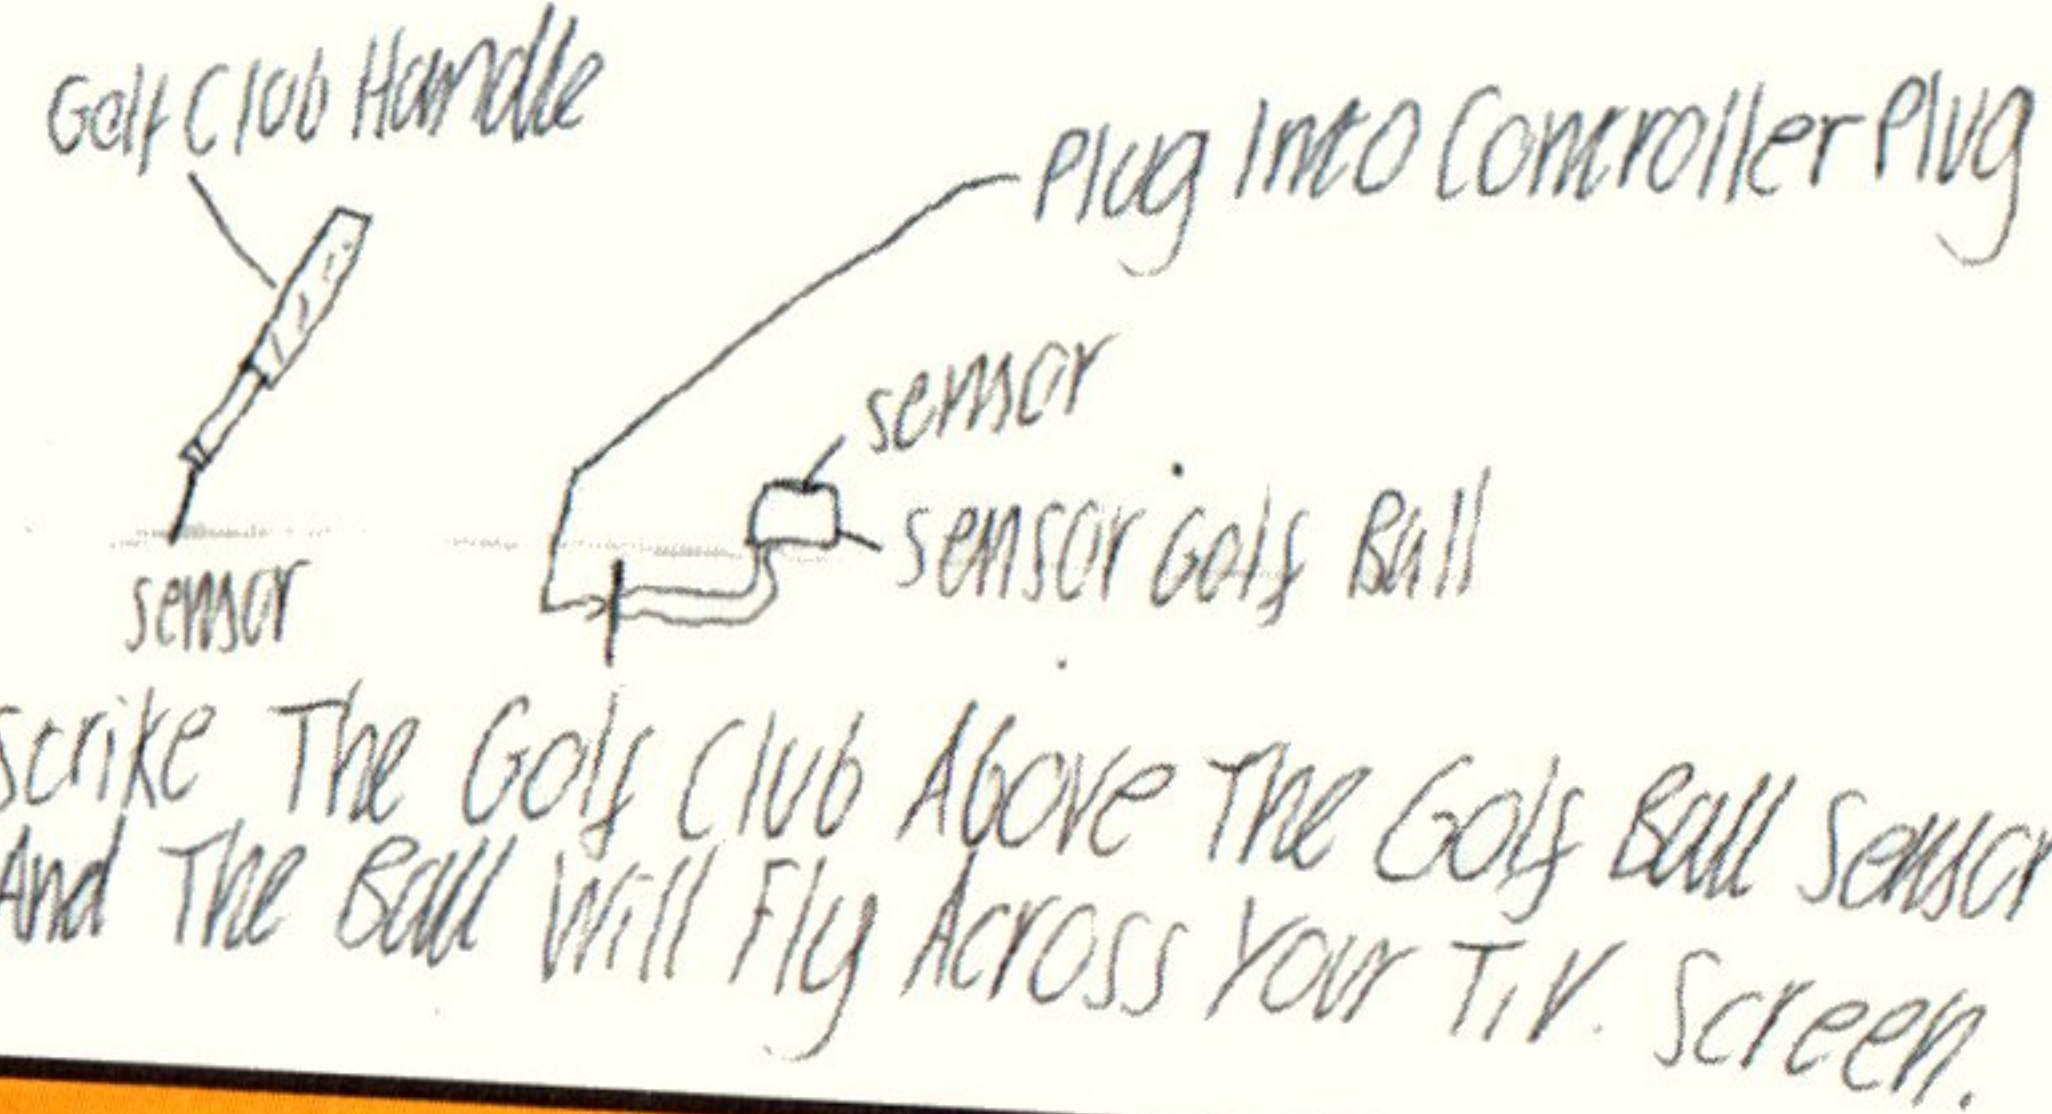 Golf Club Handle
Plug Into Controller Plug
sensor
sensor Golf Ball
sensor
Strike The Golf Club Above The Golf Ball Sensor
And The Ball Will Fly Across Your T.V. Screen.